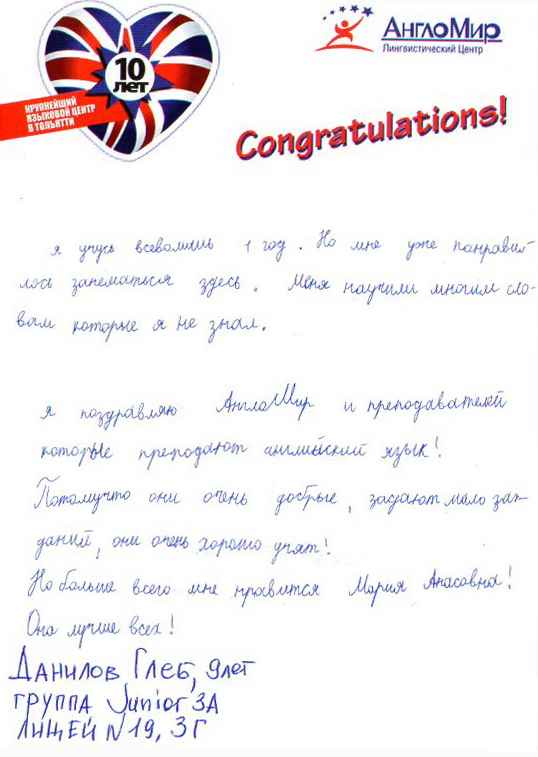 10
ЛЕТ
КРУПНЕЙШИЙ
ЯЗЫКОВОЙ ЦЕНТР
В ТОЛЬЯТТИ
АнглоМир
Лингвистический Центр
Congratulations!
я учусь всеволишь 1 год. Но мне уже панравил-
лось занематься здесь. Меня научили многим сло-
вам которые я не знал.
я поздравляю АнглоМир и преподавателей
которые преподают английский язык!
Потомучто они очень добрые, задают мало за-
даний, они очень хорошо учят!
Но больше всего мне нравится Мария Анасовна!
Она лучше всех!
ДАНИЛОВ ГЛЕБ, 9 лет
ГРУППА Junior 3А
ЛИЦЕЙ N 19, 3 Г